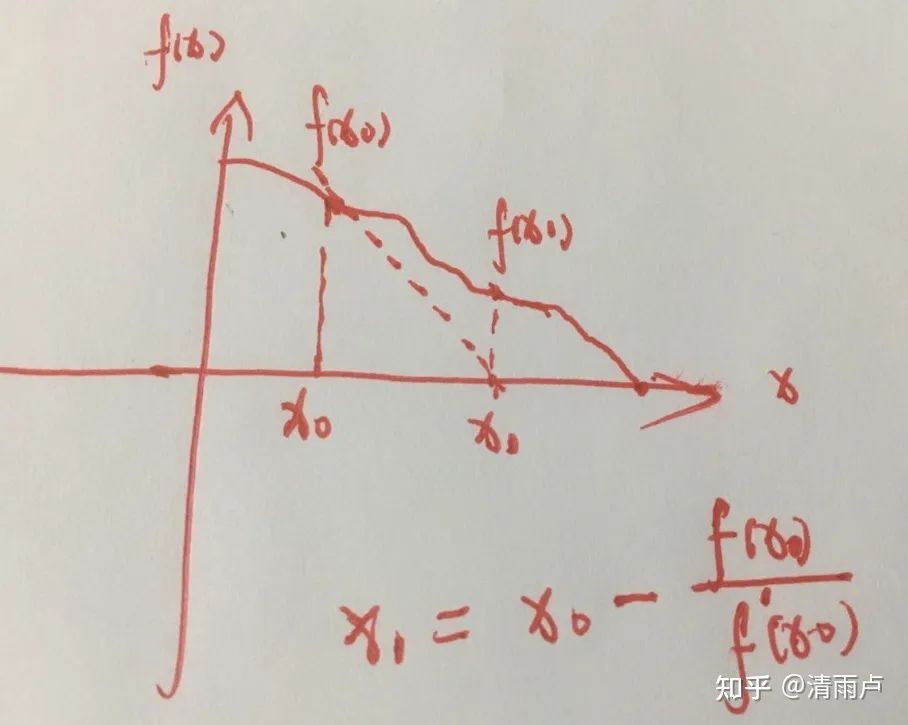 f(x)
f(x0)
f(x1)
x0
x1
x
x1 = x0 - f(x0) / f'(x0)
知乎 @清雨卢